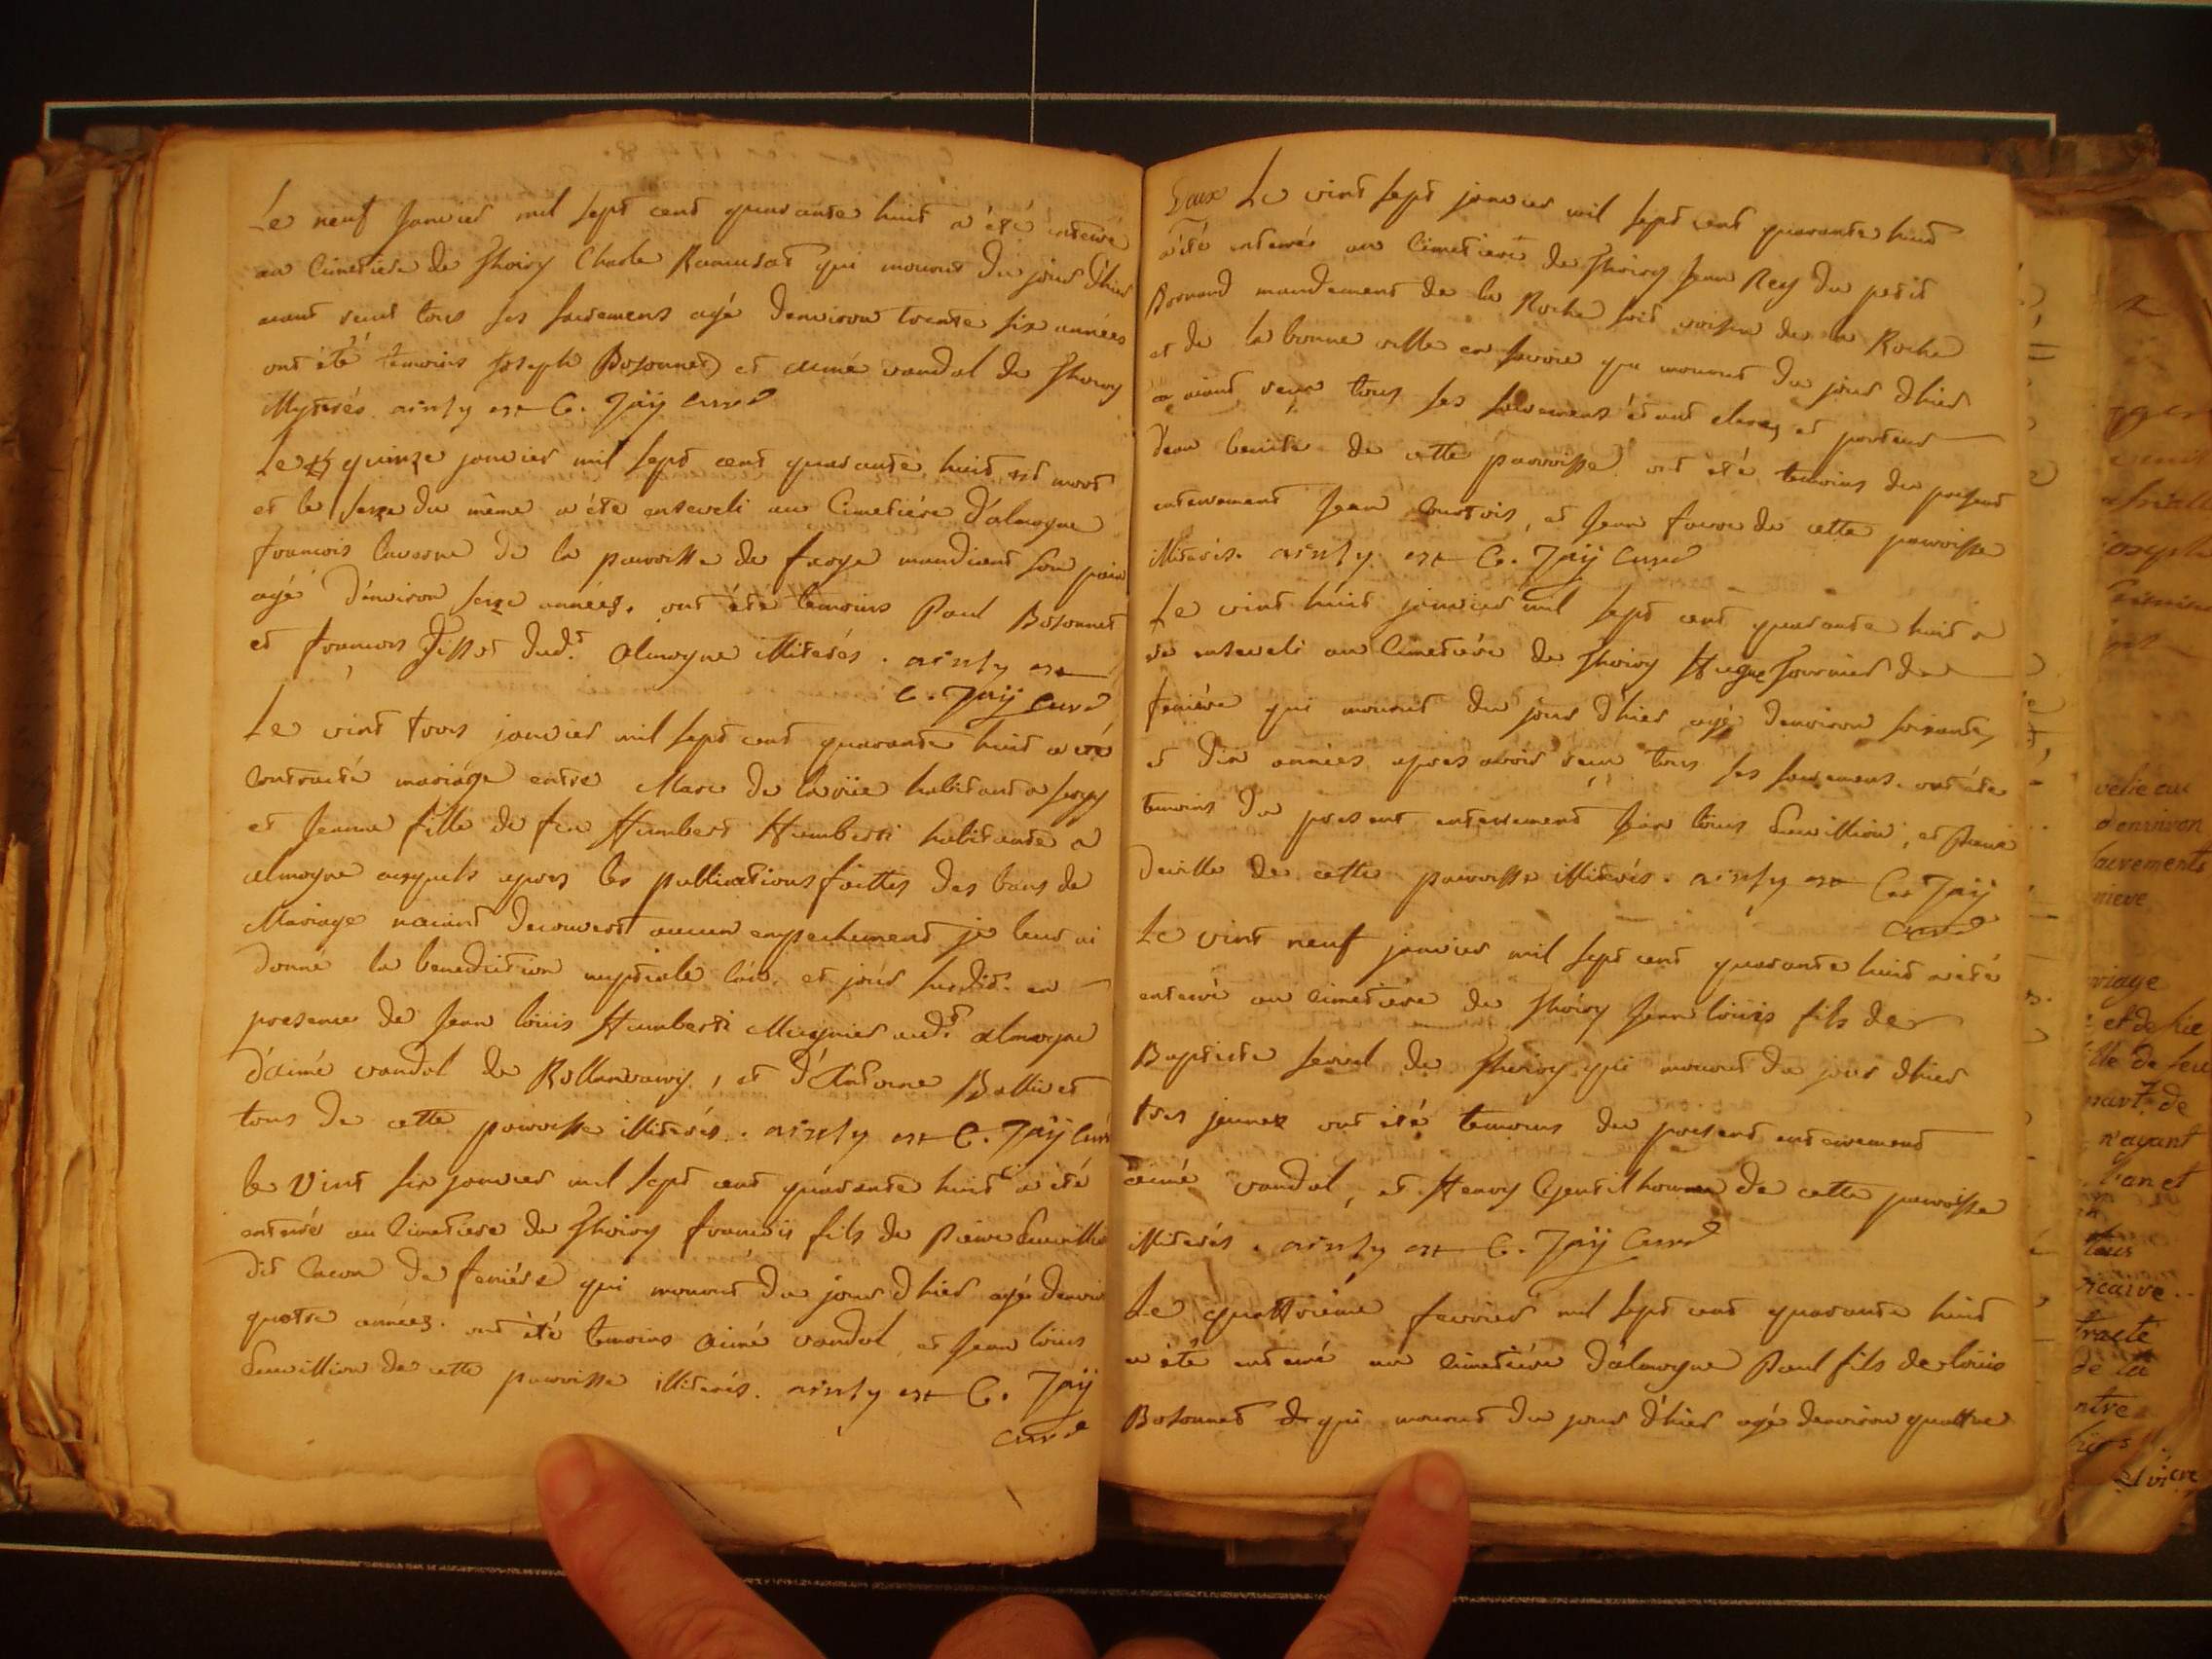 Le neuf janvier mil sept cent quarante huit a été enterré
au Cimetiere de Thoiry Charle Ramusat qui mourut du jour d'hier
aiant reçut tous ses sacremens agé d'environ trente six années
ont été temoins Joseph Bosonnet et aimé vandal de Thoiry
illiterés ainsy est C. Jaÿ Curé
Le 15 quinze janvier mil sept cent quarante huit est mort
et le seize du même a été enseveli au Cimetiére d'almogne
francois laverne de la parroisse de farge mandiant son pain
agé d'environ seize années. ont été temoins Paul Bosonnet
et francois Tisset dudt. almogne illiterés. ainsy est
C. Jaÿ Curé
Le vint trois janvier mil sept cent quarante huit a été
Contracté mariage entre Marc de lavüe habitant a sergy
et Jeanne fille de feu Humbert Humberti habitante a
almogne auxquels apres les publications faittes des bans de
Mariage naiant decouvert aucun empechement je leur ai
donné la benediction nuptiale l'an et jour susdit en
presence de Jean loüis Humberti Mugnier audt. almogne
d'aimé vandal de et d'Antoine Ballivet
tous de cette parroisse illiterés. ainsy est C. Jaÿ Curé
le Vint six janvier mil sept cent quarante huit a été
enterré au Cimetiere de Thoiry francois fils de Pierre
dit de feniére qui mourut du jour d'hier agé d'environ
quatre années. ont été temoins aimé vandal et Jean loüis
de cette parroisse illiterés. ainsy est C. Jaÿ
Curé
Le vint sept janvier mil sept cent quarante huit
a été enterré au Cimetiere de Thoiry Jean Rey du petit
Bornand mandement de la Roche soit voisin de la Roche
et de la bonne ville en savoie qui mourut du jour d'hier
aiant reçu tous ses sacremens étant et porteur
d'eau benite de cette parroisse ont été temoins du present
enterrement Jean Courtois, et Jean favre de cette parroisse
illiterés. ainsy est C. Jaÿ Curé
Le vint huit janvier mil sept cent quarante huit a
été enseveli au Cimetiére de Thoiry Hugue fournier de
feniére qui mourut du jour d'hier agé d'environ soixante
et dix années apres avoir reçu tous ses sacremens. ont été
temoins du present enterrement Jean loüis et Pierre
deville de cette parroisse illiterés. ainsy est C. Jaÿ
Curé
Le vint neuf janvier mil sept cent quarante huit a été
enterré au cimetiére de Thoiry Jean loüis fils de
Baptiste de Thoiry qui mourut du jour d'hier
tres jeune ont été temoins du present enterrement
aimé vandal, et Henry Gentilhomme de cette parroisse
illiterés. ainsy est C. Jaÿ Curé
Le quattriéme fevrier mil sept cent quarante huit
a été enterré au cimetiére d'almogne Paul fils de loüis
Bosonnet qui mourut du jour d'hier agé d'environ quattre
velie au
d'environ
sacrements
nieve
riage
et de lie
lle de feu
mart. de
n'ayant
tous
vicaire
tracte
de la
ntre